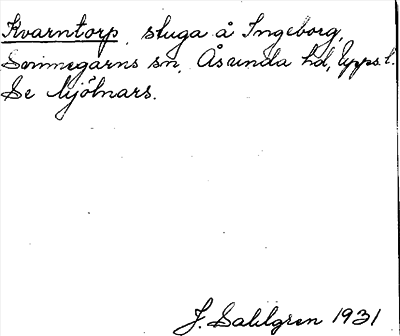 Kvarntorp, stuga å Ingeborg,
Simmegarns sn, Åsunda hd, Upps. l.
Se Mjölnars.
J. Sahlgren 1931